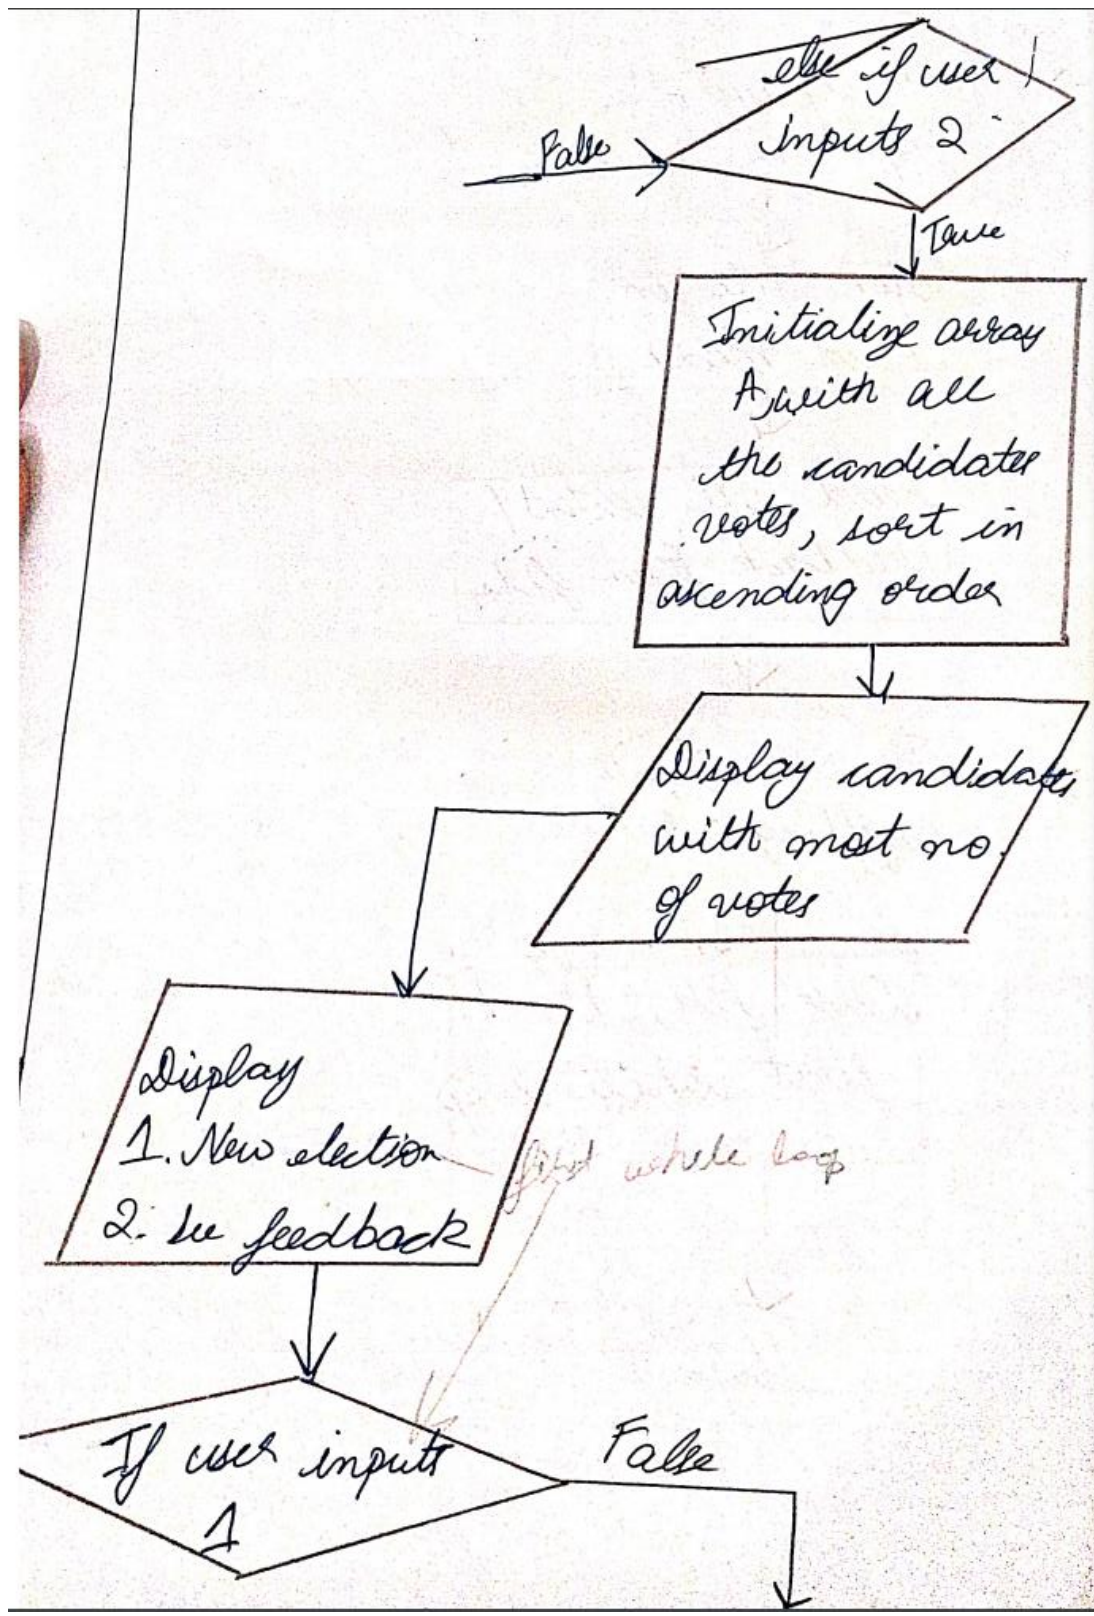 else if user
inputs 2
False
True
Initialize array
A, with all
the candidates
votes, sort in
ascending order
Display candidates
with most no.
of votes
Display
1. New election
2. See feedback
first while loop
If user inputs
1
False